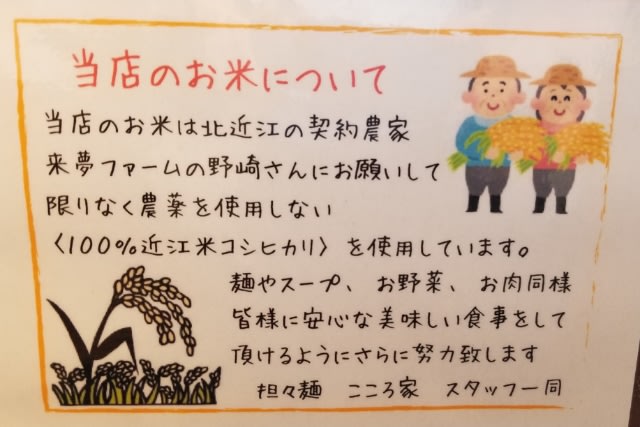 当店のお米について
当店のお米は北近江の契約農家
来夢ファームの野崎さんにお願いして
限りなく農薬を使用しない
〈100%近江米コシヒカリ〉を使用しています。
麺やスープ、お野菜、お肉同様
皆様に安心な美味しい食事をして
頂けるようにさらに努力致します
担々麺 こころ家 スタッフ一同